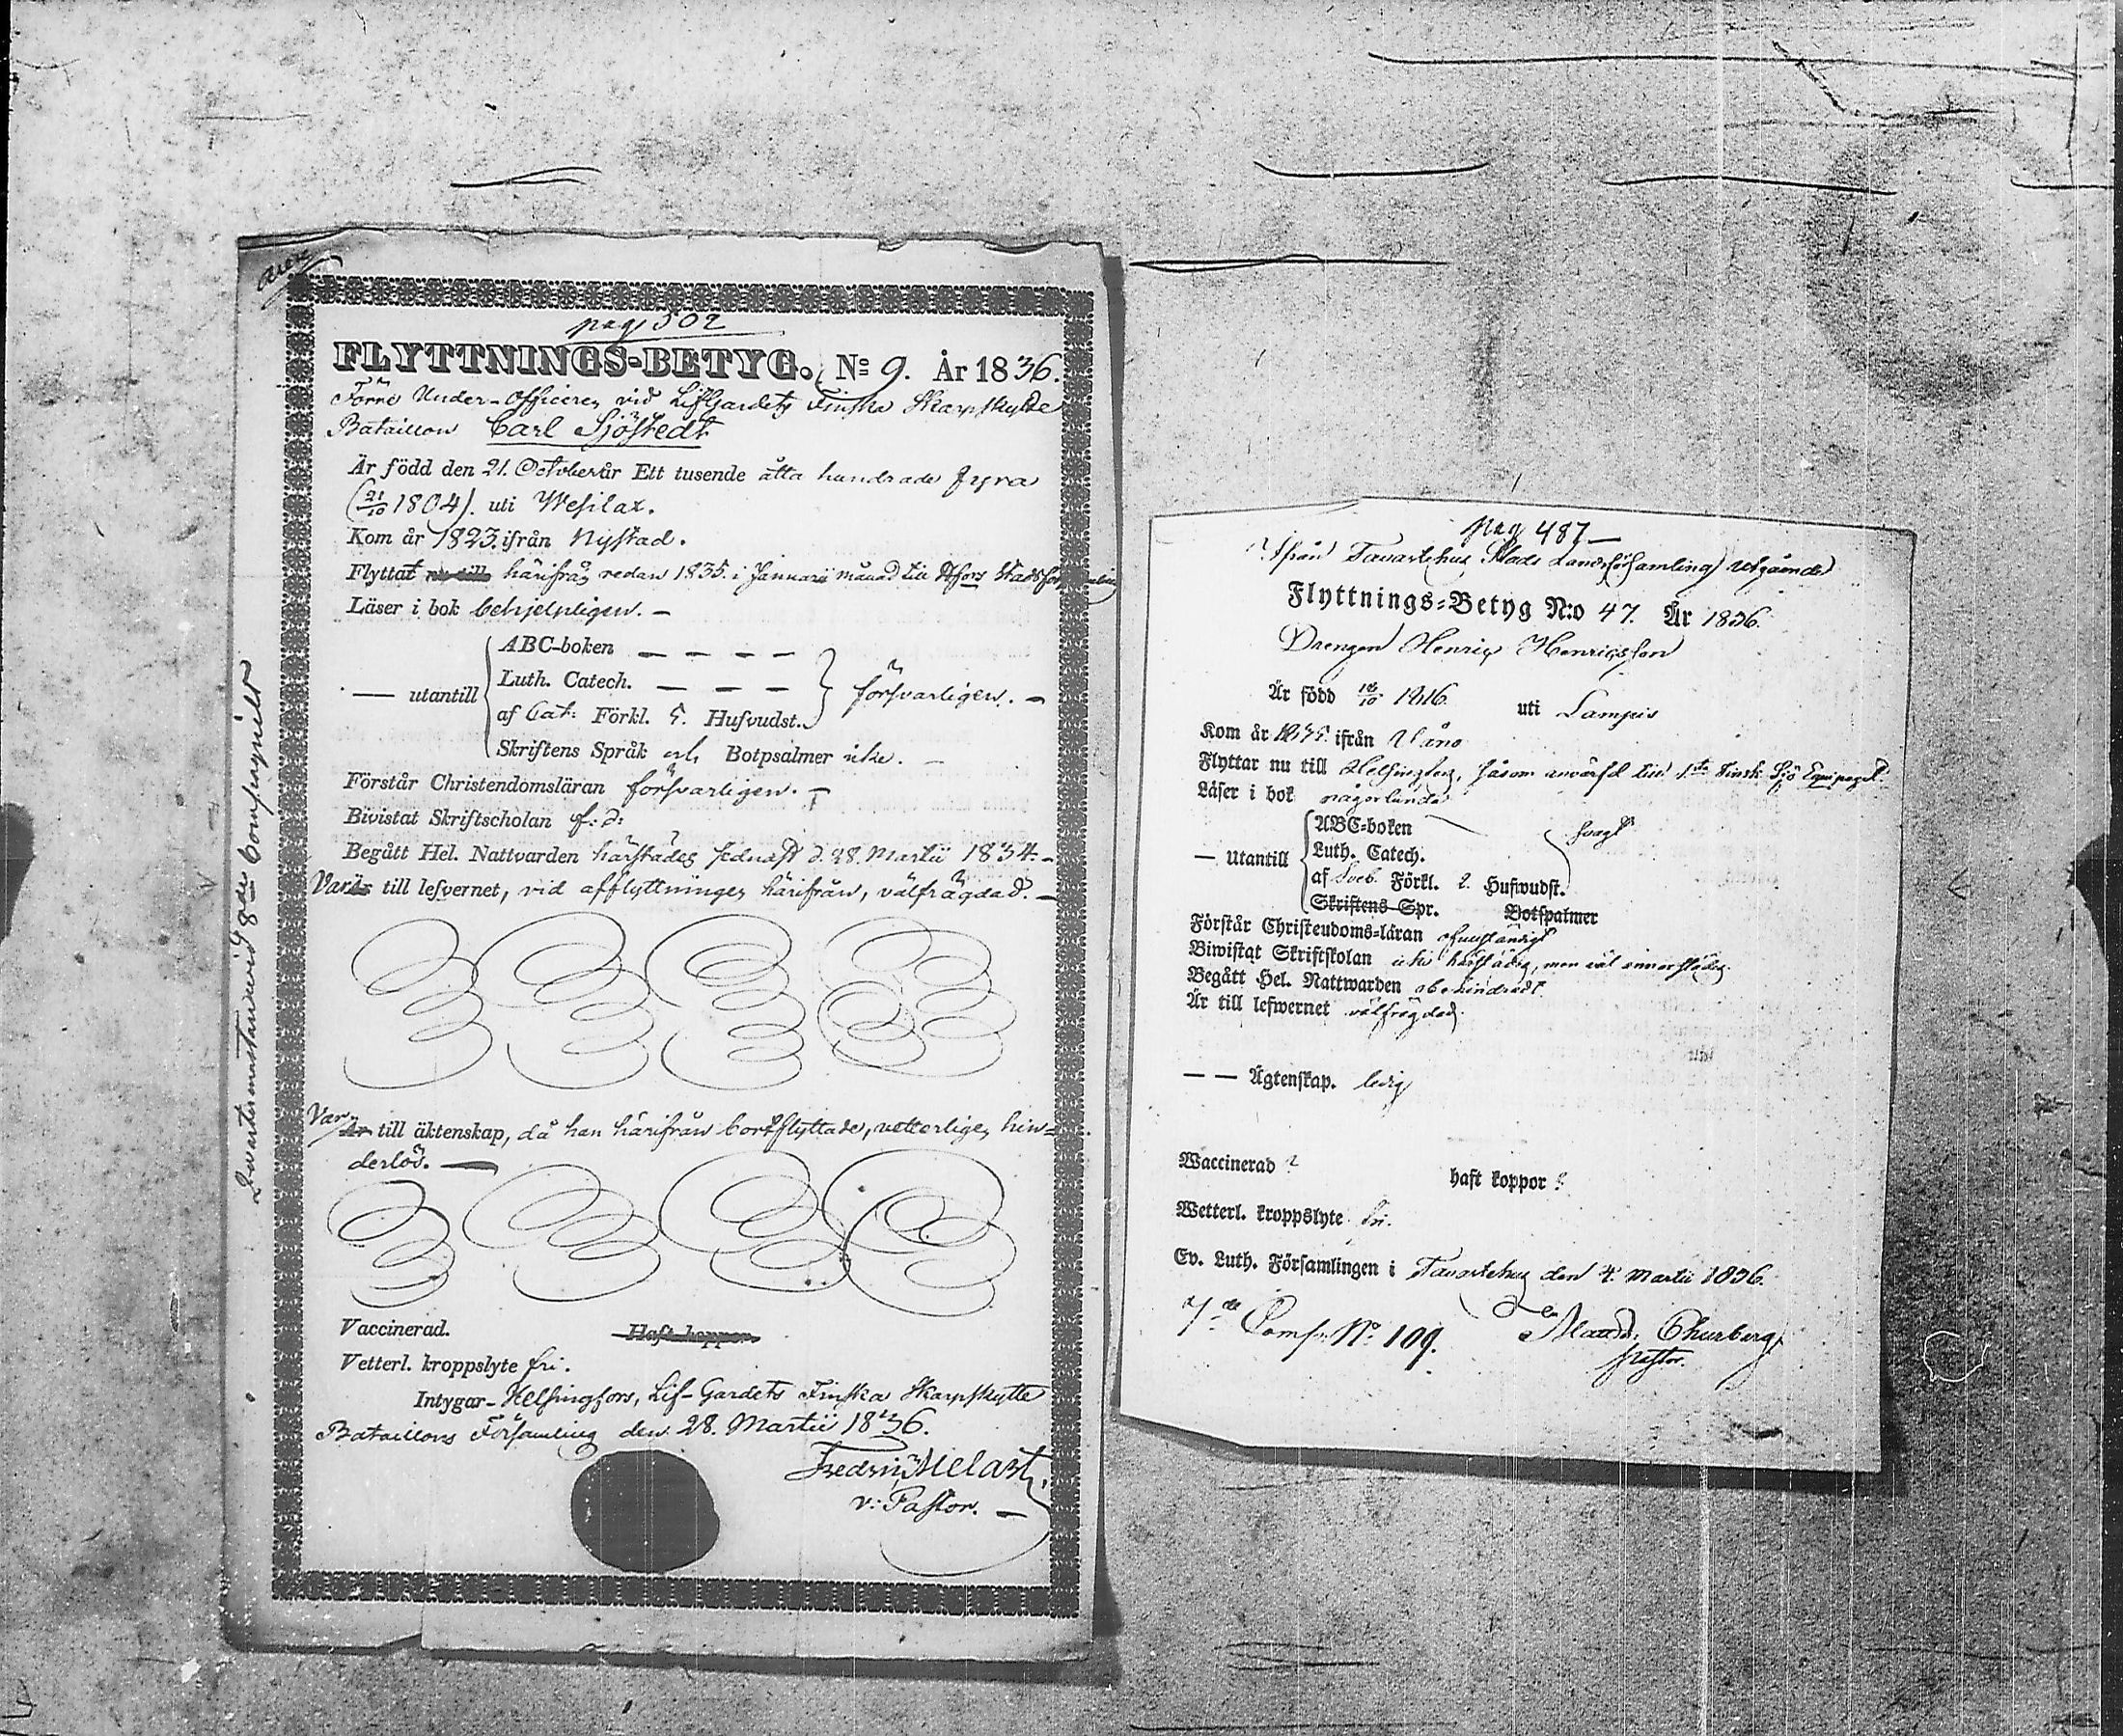 pag 502
FLYTTNINGS-BETYG. No 9. År 1836.
Förre Under-officeren vid LifGardets Finska Skarpskytte
Bataillon Carl Sjöstedt
Är född den 21. October år Ett tusende åtta hundrade fyra
(21/10 1804). uti Wesilax.
Kom år 1823. ifrån Nystad.
Flyttat nu till härifrån redan 1835. i Januarii månad till Hfors Stadsförsamling
Läser i bok behjelpligen. —
— utantill
ABC-boken — — — —
Luth. Catech. — — —
försvarligen. —
af Cat: Förkl. 5. Hufvudst.
Skriftens Språk och Botpsalmer icke. —
Förstår Christendomsläran försvarligen. —
Bivistat Skriftscholan f: d:
Begått Hel. Nattvarden härstädes sednast d. 28. Martii 1834. —
Var till lefvernet, vid afflyttningen härifrån, välfrägdad. —
Var Är till äktenskap, då han härifrån bortflyttade, vetterligen hin=
derlös. —
Vaccinerad. Haft koppor.
Vetterl. kroppslyte fri.
Intygar- Helsingfors, Lif-Gardets Finska Skarpskytte
Bataillons Församling den 28. Martii 1836.
Fredric Melart,
v: Pastor. —
Qvartermästaren vid 8de Compagniet
pag 487 —
Ifrån Tavastehus Stads Landsförsamling utgående
Flyttnings-Betyg N:o 47. År 1836.
Drengen Henric Henricsson
Är född 1816. uti Lampis
Kom år 1835. ifrån Vånå
Flyttar nu till Helsingfors, såsom anvärfd till 1sta Finsk. Sjö Equipaget.
Läser i bok någorlunda
ABC-boken svagt
— Utantill Luth. Catech.
af Sveb. Förkl. 2. Hufwudst.
Skriftens Spr. Botspalmer
Förstår Christendoms-läran ofullständigt
Biwistat Skriftskolan icke härstädes, men väl annorstädes.
Begått Hel. Nattwarden obehindradt
Är till lefwernet välfrägdad.
— — Ägtenskap. ledig
Waccinerad ? haft koppor ?
Wetterl. kroppslyte fri.
Ev. Luth. Församlingen i Tavastehus den 4. Martii 1836.
7de Comp. No 109. Churberg
pastor.